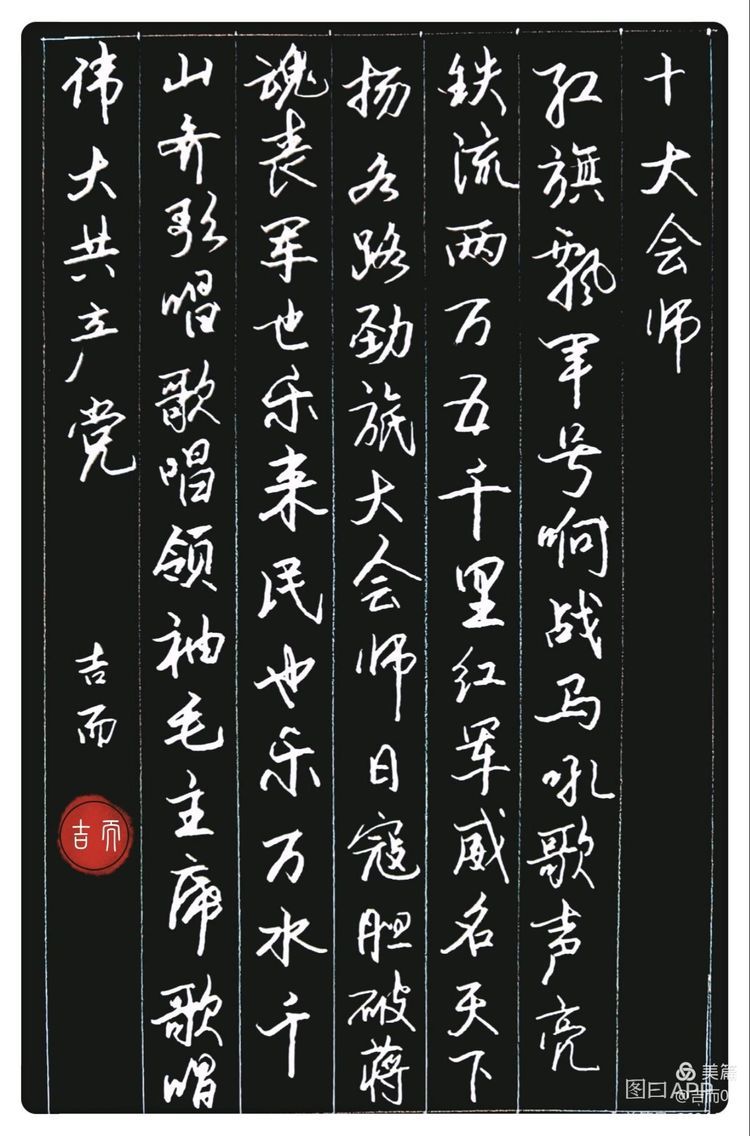 十大会师
红旗飘军号响战马吼歌声亮
铁流两万五千里红军威名天下
扬各路劲旅大会师日寇胆破蒋
魂丧军也乐来民也乐万水千
山齐歌唱歌唱领袖毛主席歌唱
伟大共产党
吉而
吉而
美篇
图曰APP
@吉而0